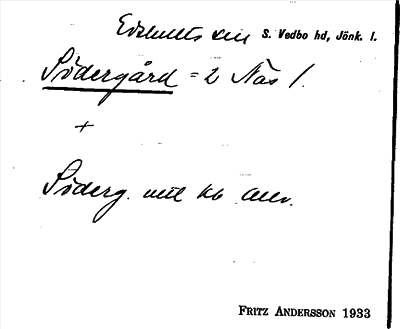 Edshults sn S. Vedbo hd, Jönk. l.
Södergård = 2 Näs 1.
+
Söderg. intill kb
FRITZ ANDERSSON 1933